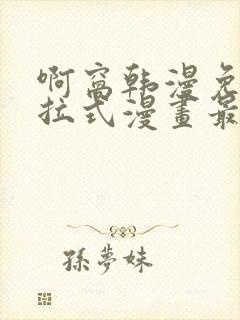 啊窩韩漫免
拉式漫畫最
孫夢妹